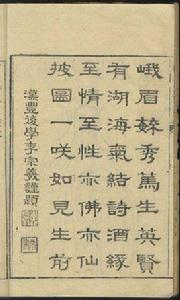 峨眉毓秀篤生英賢
有湖海氣結詩酒緣
至情至性亦佛亦仙
披圖一咲如見生前
漢豐後學李宗羲謹題